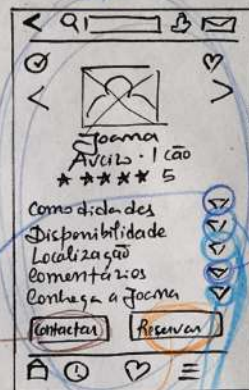 Joana
Aveiro · 1 cão
5
Comodidades
Disponibilidade
Localização
Comentários
Conheça a Joana
Contactar Reservar